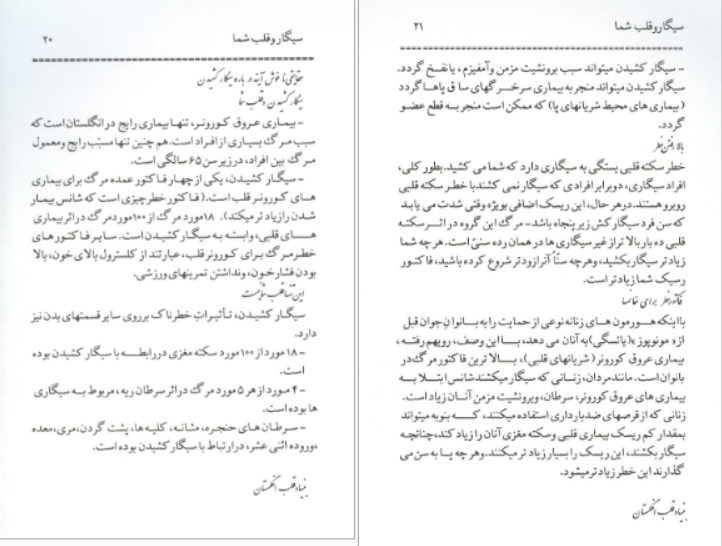 سیگار و قلب شما ۲۰
حقایقی ناخوش آیند در باره سیگار کشیدن
سیگار کشیدن و قلب شما
- بیماری عروق کورونر، تنها بیماری رایج در انگلستان است که
سبب مرگ بسیاری از افراد است. هم چنین تنها مسبّب رایج ومعمول
مرگ بین افراد، در زیر سن ۶۵ سالگی است.
- سیگار کشیدن، یکی از چهار فاکتور عمده مرگ برای بیماری
های کورونر قلب است.( فاکتور خطر چیزی است که شانس بیمار
شدن را زیاد تر میکند). ۱۸مورد مرگ از ۱۰۰مورد مرگ در اثر بیماری
هـای قلبی، وابسته به سیگار کشیدن است. سایر فاکتور های
خطر مرگ برای کورونر قلب، عبارتند از کلسترول بالای خون، بالا
بودن فشار خون، ونداشتن تمرینهای ورزشی.
این تنها قلب شما نیست
سیگار کشیدن، تأثیرات خطرناک بر روی سایر قسمتهای بدن نیز
دارد.
- ۱۸ مورد از ۱۰۰ مورد سکته مغزی در رابطه با سیگار کشیدن بوده
است.
- ۴ مورد از هر ۵ مورد مرگ در اثر سرطان ریه، مربوط به سیگاری
ها بوده است.
- سرطان های حنجره، مثانه، کلیه ها، پشت گردن،مری،معده
،وروده اثنی عشر، در ارتباط با سیگار کشیدن بوده است.
بنیاد قلب انگلستان
سیگار و قلب شما ۲۱
- سیگار کشیدن میتواند سبب برونشیت مزمن وآمفیزم ، یا نفخ گردد.
سیگار کشیدن میتواند منجر به بیماری سرخرگهای ساق پاها گردد
(بیماری های محیط شریانهای پا) که ممکن است منجر به قطع عضو
گردد.
بالا رفتن خطر
خطر سکته قلبی بستگی به سیگاری دارد که شما می کشید. بطور کلی،
افراد سیگاری، دوبرابر افرادی که سیگار نمی کشند با خطر سکته قلبی
روبرو هستند. در هر حال، این ریسک اضافی بویژه وقتی شدت می یابد
که سن فرد سیگار کش زیر پنجاه باشد - مرگ این گروه در اثر سکته
قلبی ده بار بالا تر از غیر سیگاری ها در همان رده سنیّ است. هر چه شما
زیاد تر سیگار بکشید، وهر چه سنّاً آنرا زود تر شروع کرده باشید، فاکتور
رسیک شما زیاد تر است.
فاکتور خطر برای خانمها
با اینکه هورمون های زنانه نوعی از حمایت را به بانوان جوان قبل
از« مونوپوز »(یائسگی)به آنان می دهد، با این وصف، رویهم رفته ،
بیماری عروق کورونر ( شریانهای قلبی)، بالا ترین فاکتور مرگ در
بانوان است. مانند مردان، زنانی که سیگار میکشند شانس ابتلا به
بیماری های عروق کورونر، سرطان، وبرونشیت مزمن آنان زیاد است.
زنانی که از قرصهای ضد بارداری استفاده میکنند، کـه بنوبه میتواند
بمقدار کم ریسک بیماری قلبی وسکته مغزی آنان را زیاد کند، چنانچه
سیگار بکشند، این ریسک را بسیار زیاد تر میکنند. وهر چه پا به سن می
گذارند این خطر زیاد تر میشود.
بنیاد قلب انگلستان